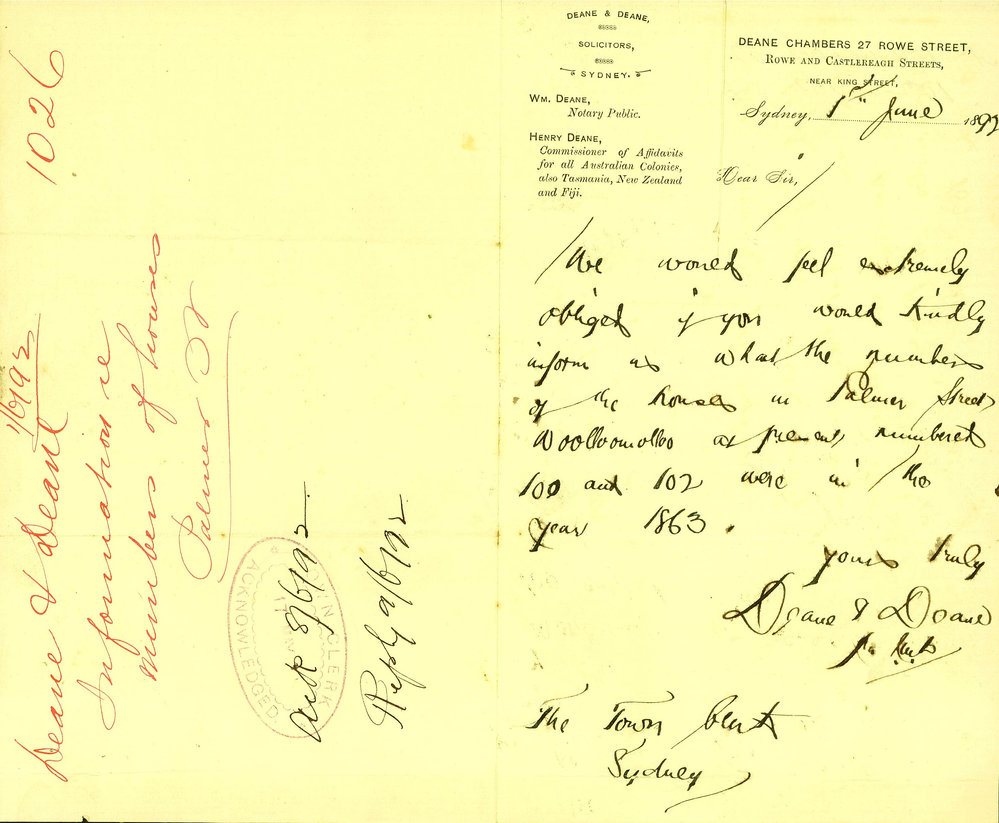 1026
Deane & Deane 1/6/92
Information re
numbers of houses
Palmer St
TOWN CLERK
ACKNOWLEDGED
Ack 8/6/92
Reply 9/6/92
DEANE & DEANE,
SOLICITORS,
SYDNEY.
WM. DEANE,
Notary Public.
HENRY DEANE,
Commissioner of Affidavits
for all Australian Colonies,
also Tasmania, New Zealand
and Fiji.
DEANE CHAMBERS 27 ROWE STREET,
ROWE AND CASTLEREAGH STREETS,
NEAR KING STREET,
Sydney, 1st June 1892
Dear Sir,
We would feel extremely
obliged if you would kindly
inform us what the numbers
of the houses in Palmer Street
Woolloomolloo at present numbered
100 and 102 were in the
year 1863.
yours truly
Deane & Deane
The Town Clerk
Sydney